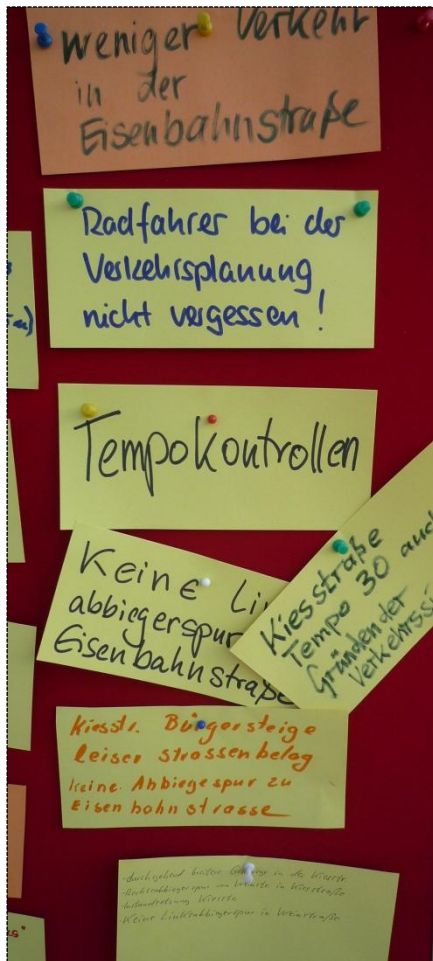 weniger Verkehr
in der
Eisenbahnstraße
Radfahrer bei der
Verkehrsplanung
nicht vergessen!
Tempokontrollen
Keine
abbiegerspur
Eisenbahnstraße
Kiesstraße
Tempo 30
Gründen der
Kiesstr. Bürgersteige
leiser strassenbelag
keine Abbiegespur zu
Eisenbahnstrasse
in der Kiesstr.
in Kiesstraße
Keine Linksabbiegerspur in Weinstraße